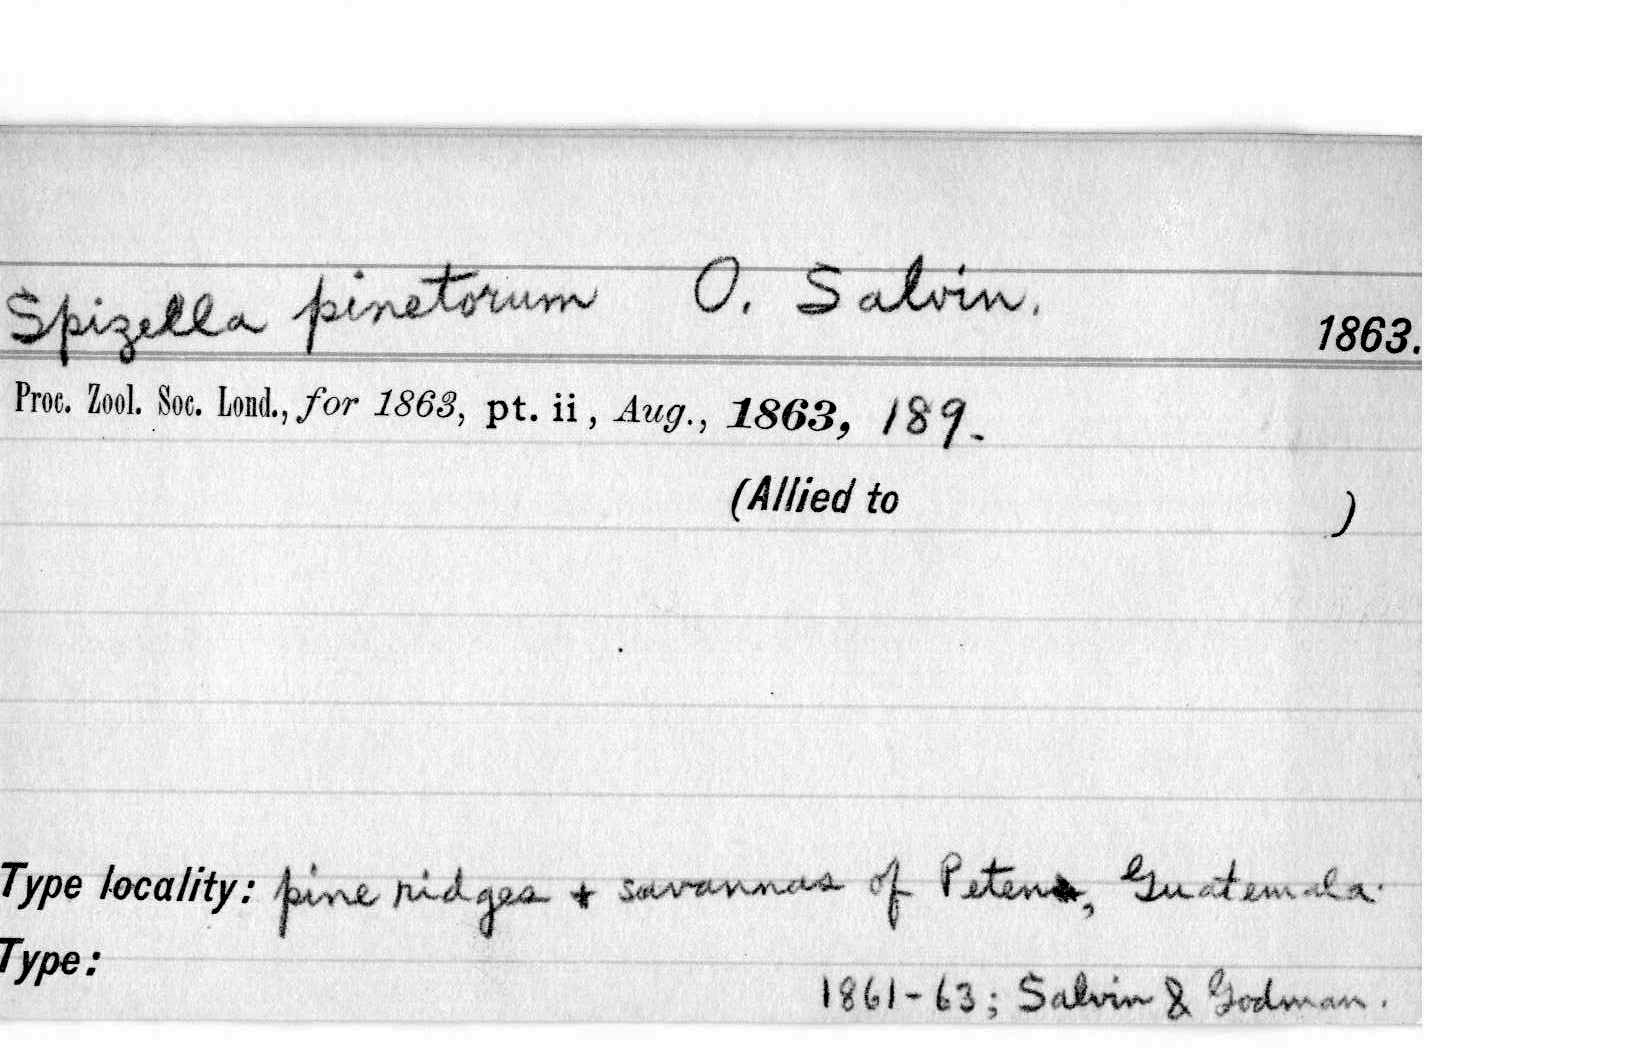 Spizella pinetorum O. Salvin.
1863.
Proc. Zool. Soc. Lond., for 1863, pt. ii, Aug., 1863, 189.
(Allied to )
Type locality: pine ridges + savannas of Peten, Guatemala.
Type:
1861-63; Salvin & Godman.